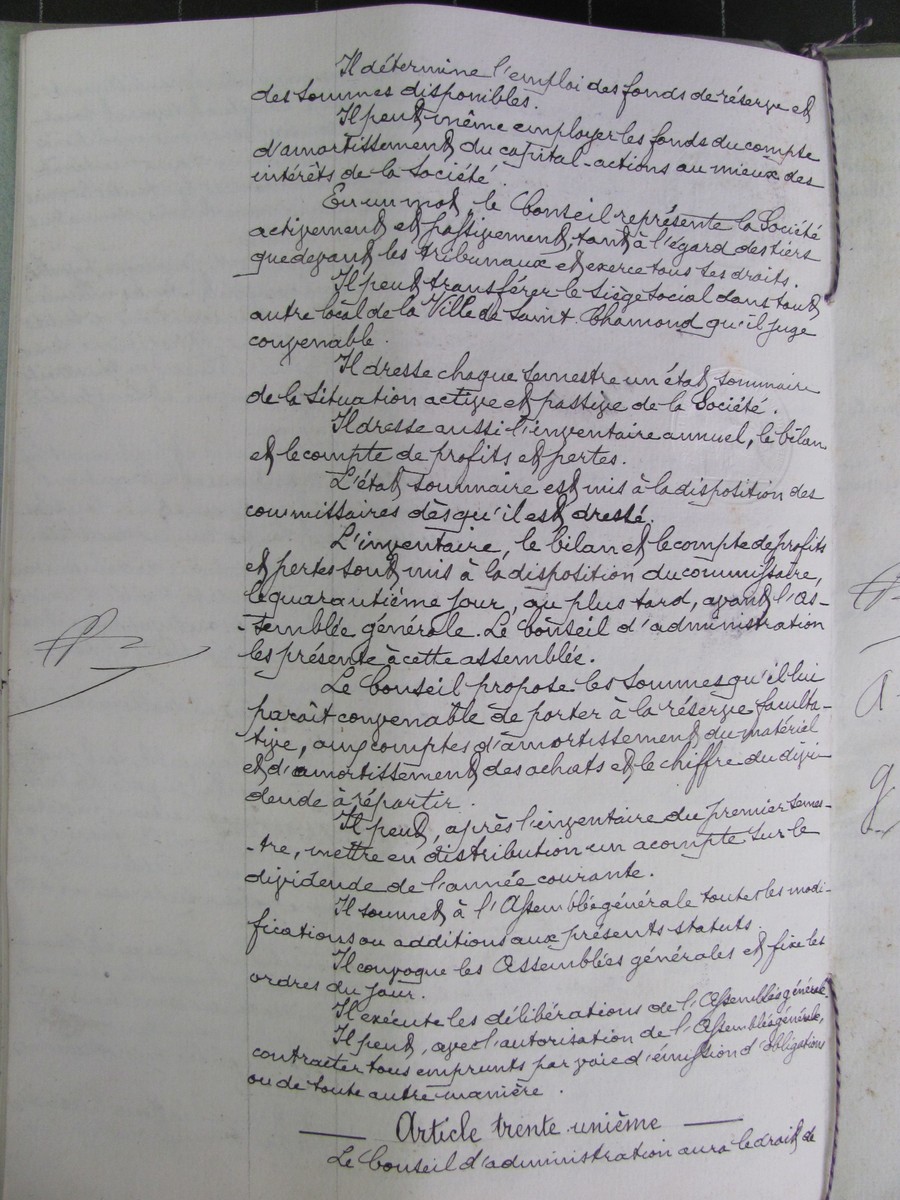 Il détermine l'emploi des fonds de réserve et
des sommes disponibles.
Il peut même employer les fonds du compte
d'amortissement du capital-actions au mieux des
intérêts de la Société.
En un mot, le Conseil représente la Société
activement et passivement, tant à l'égard des tiers
que devant les tribunaux et exerce tous ses droits.
Il peut transférer le siège social dans tout
autre local de la Ville de Saint-Chamond qu'il juge
convenable.
Il dresse chaque semestre un état sommaire
de la situation active et passive de la Société.
Il dresse aussi l'inventaire annuel, le bilan
et le compte de profits et pertes.
L'état sommaire est mis à la disposition des
commissaires dès qu'il est dressé.
L'inventaire, le bilan et le compte de profits
et pertes sont mis à la disposition du commissaire,
le quarantième jour, au plus tard, avant l'As-
-semblée générale. Le Conseil d'administration
les présente à cette assemblée.
Le Conseil propose les sommes qu'il lui
paraît convenable de porter à la réserve faculta-
tive, aux comptes d'amortissement du matériel
et d'amortissement des achats et le chiffre du divi-
dende à répartir.
Il peut, après l'inventaire du premier semes-
-tre, mettre en distribution un acompte sur le
dividende de l'année courante.
Il soumet à l'Assemblée générale toutes les modi-
fications ou additions aux présents statuts.
Il convoque les Assemblées générales et fixe les
ordres du jour.
Il exécute les délibérations de l'Assemblée générale.
Il peut, avec l'autorisation de l'Assemblée générale,
contracter tous emprunts par voie d'émission d'obligations
ou de toute autre manière.
Article trente unième
Le Conseil d'administration aura le droit de